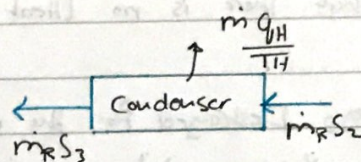 ṁ q_H
T_H
Condenser
ṁ_R S_3
ṁ_R S_2